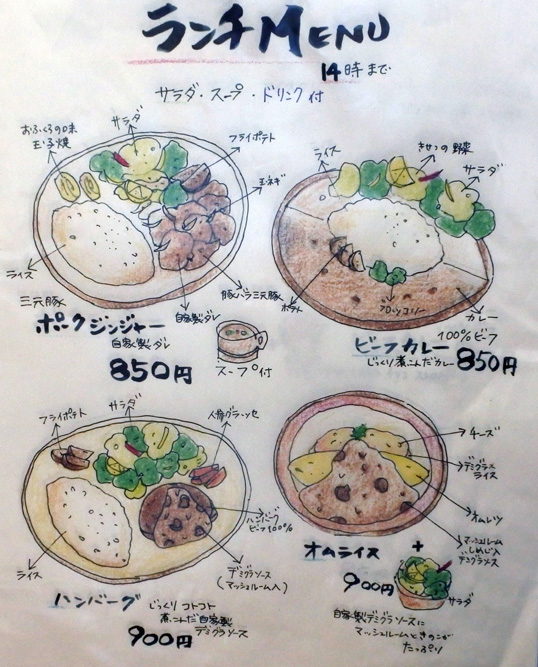 ランチMENU
14時まで
サラダ・スープ・ドリンク付
おふくろの味
玉子焼
サラダ
フライポテト
玉ネギ
ライス
豚バラ三元豚
自家製ダレ
三元豚
ポークジンジャー
自家製ダレ
850円
スープ付
ライス
きせつの野菜
サラダ
ポテト
ブロッコリー
カレー
100%ビーフ
ビーフカレー
じっくり煮こんだカレー
850円
フライポテト
サラダ
人参グラッセ
ハンバーグ
ビーフ100%
ライス
デミグラソース
(マッシュルーム入)
ハンバーグ
じっくりコトコト
煮こんだ自家製
デミグラソース
900円
チーズ
デミグラス
ライス
オムレツ
マッシュルーム
しめじ入
デミグラソース
オムライス
+
900円
サラダ
自家製デミグラソースに
マッシュルームときのこが
たっぷり